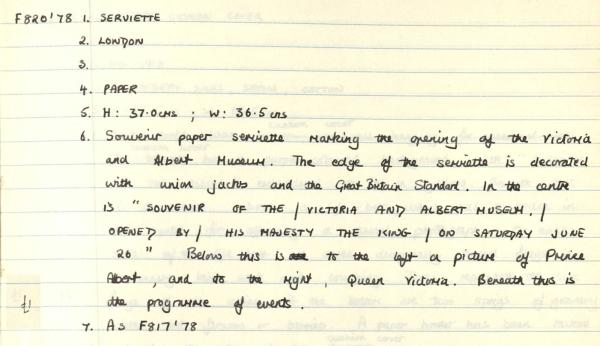 F820'78 1. SERVIETTE
2. LONDON
3.
4. PAPER
5. H: 37.0cms ; W: 36.5cms
6. Souvenir paper serviette marking the opening of the Victoria
and Albert Museum. The edge of the serviette is decorated
with union jacks and the Great Britain Standard. In the centre
is "SOUVENIR OF THE / VICTORIA AND ALBERT MUSEUM. /
OPENED BY / HIS MAJESTY THE KING / ON SATURDAY JUNE
26 " Below this is to the left a picture of Prince
Albert, and to the right, Queen Victoria. Beneath this is
the programme of events.
7. As F817'78